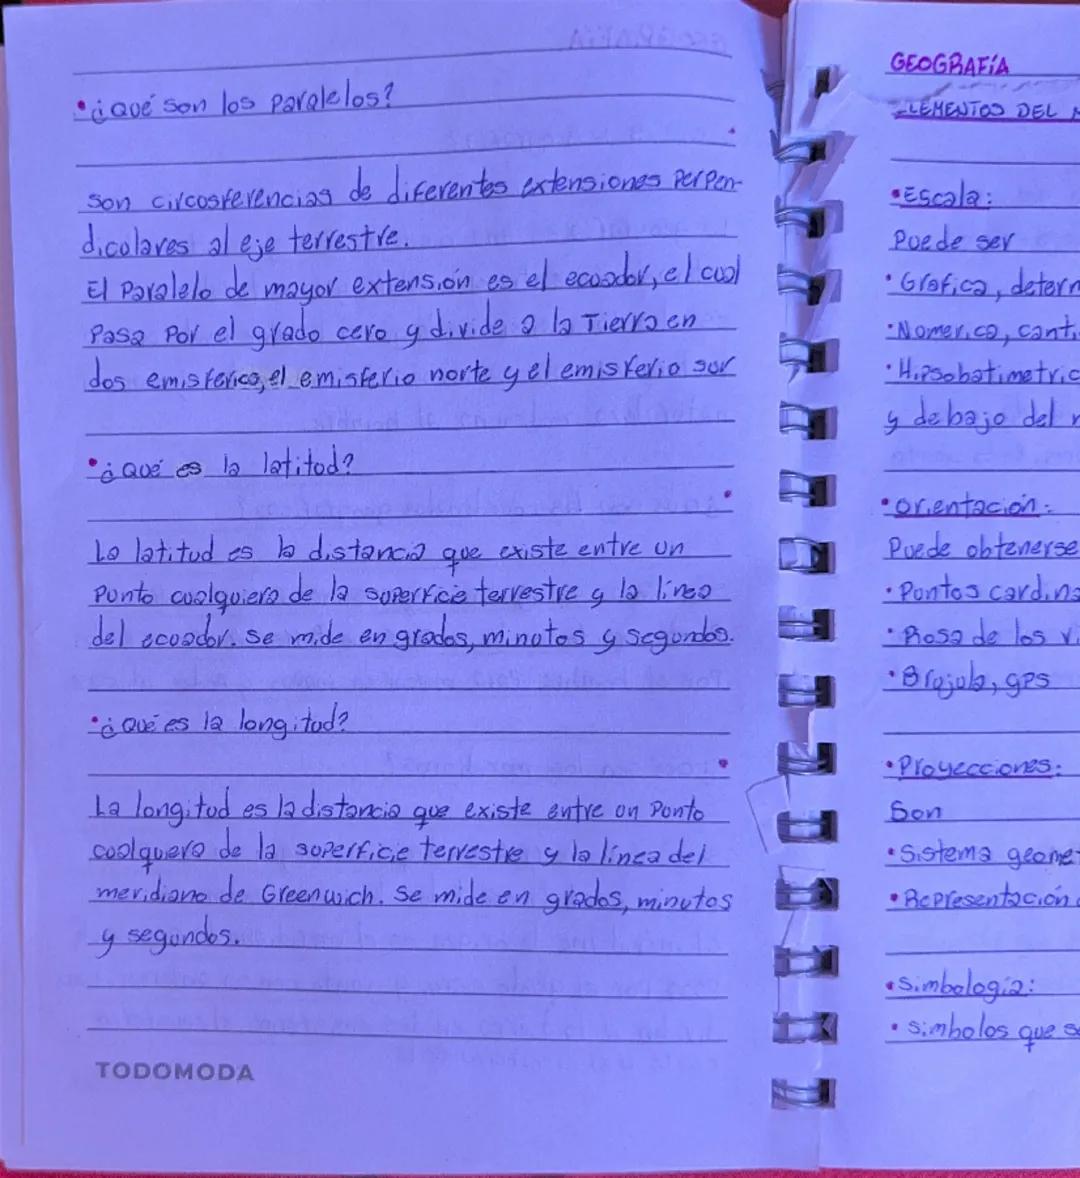 • ¿Qué son los paralelos?
Son circosferencias de diferentes extensiones perpen-
dicolares al eje terrestre.
El Paralelo de mayor extensión es el ecuador, el cual
Pasa Por el grado cero y divide a la Tierra en
dos emisferios, el emisferio norte y el emisferio sur
• ¿Qué es la latitud?
La latitud es la distancia que existe entre un
Punto cualquiera de la superficie terrestre y la línea
del ecuador. Se mide en grados, minutos y segundos.
• ¿Qué es la longitud?
La longitud es la distancia que existe entre un Punto
cualquiera de la superficie terrestre y la línea del
meridiano de Greenwich. Se mide en grados, minutos
y segundos.
TODOMODA
GEOGRAFÍA
ELEMENTOS DEL
• Escala:
Puede ser
• Grafica, determ
• Numerica, canti
• Hipsobatimetric
y debajo del
• Orientación:
Puede obtenerse
• Puntos cardina
• Rosa de los vi
• Brujula, gps
• Proyecciones:
Son
• Sistema geome
• Representación
• Simbología:
• Simbolos que se